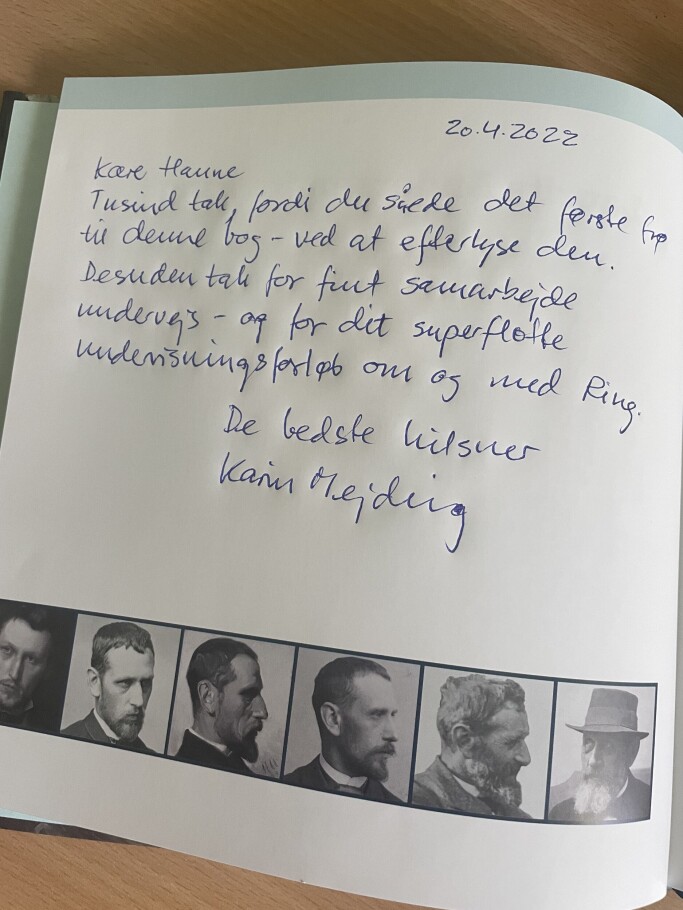 20.4.2022
Kære Hanne
Tusind tak, fordi du såede det første frø
til denne bog - ved at efterlyse den.
Desuden tak for fint samarbejde
undervejs - og for dit superflotte
undervisningsforløb om og med Ring.
De bedste hilsner
Karin Mejding